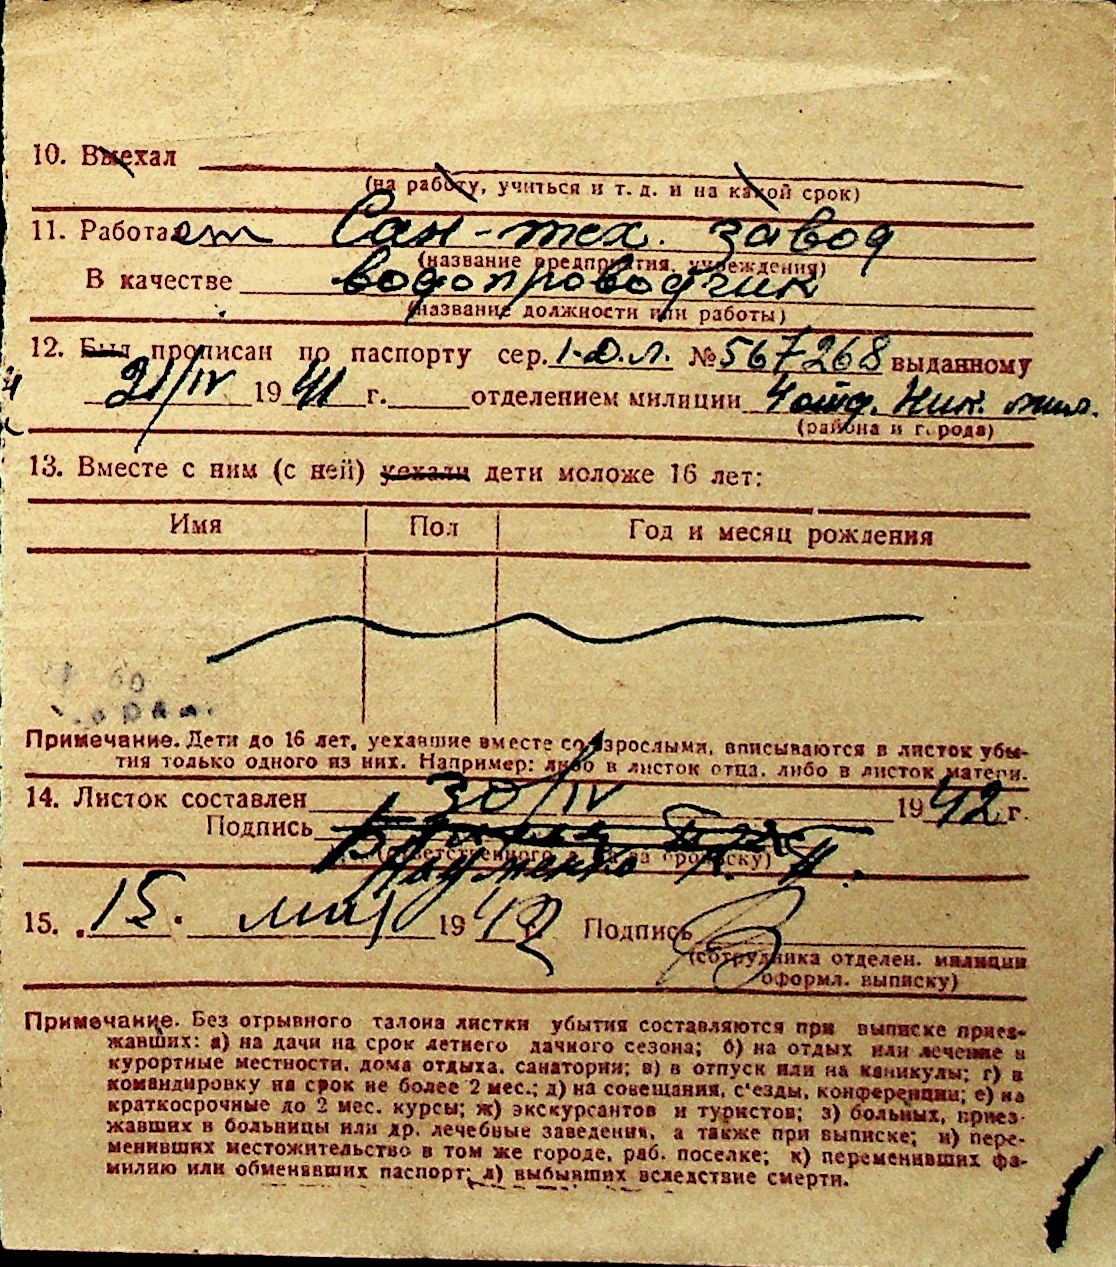 10. Выехал
(на работу, учиться и т. д. и на какой срок)
11. Работает Сан-тех. завод
(название предприятия, учреждения)
В качестве водопроводчик
(название должности или работы)
12. Был прописан по паспорту сер. I-О.Л. № 567268 выданному
21/IV 1941 г. отделением милиции 4 отд.
(района и города)
13. Вместе с ним (с ней) уехали дети моложе 16 лет:
Имя Пол Год и месяц рождения
Примечание. Дети до 16 лет, уехавшие вместе со взрослыми, вписываются в листок убы-
тия только одного из них. Например: либо в листок отца, либо в листок матери.
14. Листок составлен 30/IV 1942 г.
Подпись
(ответственного лица за прописку)
Науменко К. П.
15. 15. май 1942 г. Подпись
(сотрудника отделен. милиции
оформл. выписку)
Примечание. Без отрывного талона листки убытия составляются при выписке приез-
жавших: а) на дачи на срок летнего дачного сезона; б) на отдых или лечение в
курортные местности, дома отдыха, санатории; в) в отпуск или на каникулы; г) в
командировку на срок не более 2 мес.; д) на совещания, с'езды, конференции; е) на
краткосрочные до 2 мес. курсы; ж) экскурсантов и туристов; з) больных, приез-
жавших в больницы или др. лечебные заведения, а также при выписке; и) пере-
менивших местожительство в том же городе, раб. поселке; к) переменивших фа-
милию или обменявших паспорт; л) выбывших вследствие смерти.